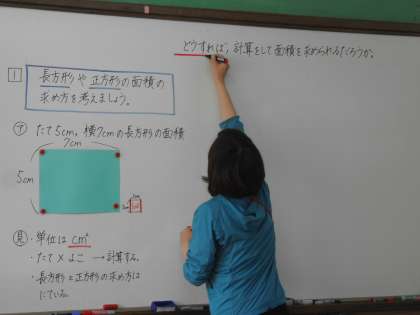 どうすれば、計算をして面積を求められるだろうか。
1 長方形や正方形の面積の
求め方を考えましょう。
㋐ たて5cm,横7cmの長方形の面積
7cm
5cm
㋯ ・単位はcm²
・たて×よこ→計算する。
・長方形と正方形の求め方は
にている。